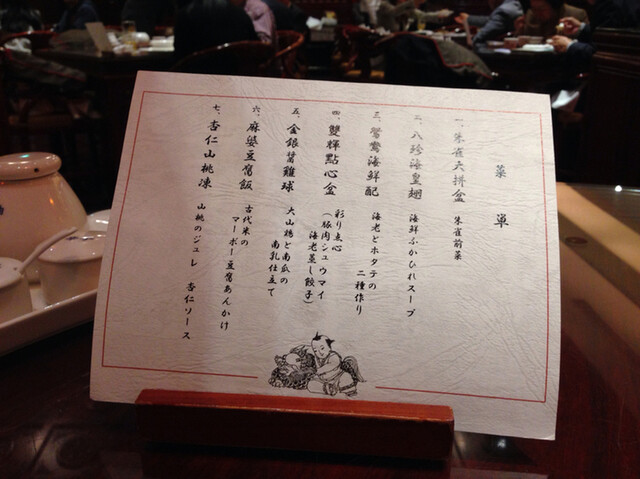 菜単
一、朱雀大拼盆 朱雀前菜
二、八珍海皇翅 海鮮ふかひれスープ
三、鴛鴦海鮮配 海老とホタテの
二種作り
四、雙輝點心盆 彩り点心
(豚肉シュウマイ
海老蒸し餃子)
五、金銀醤雞球 大山鶏と南瓜の
南乳仕立て
六、麻婆豆腐飯 古代米の
マーボー豆腐あんかけ
七、杏仁山桃凍 山桃のジュレ 杏仁ソース